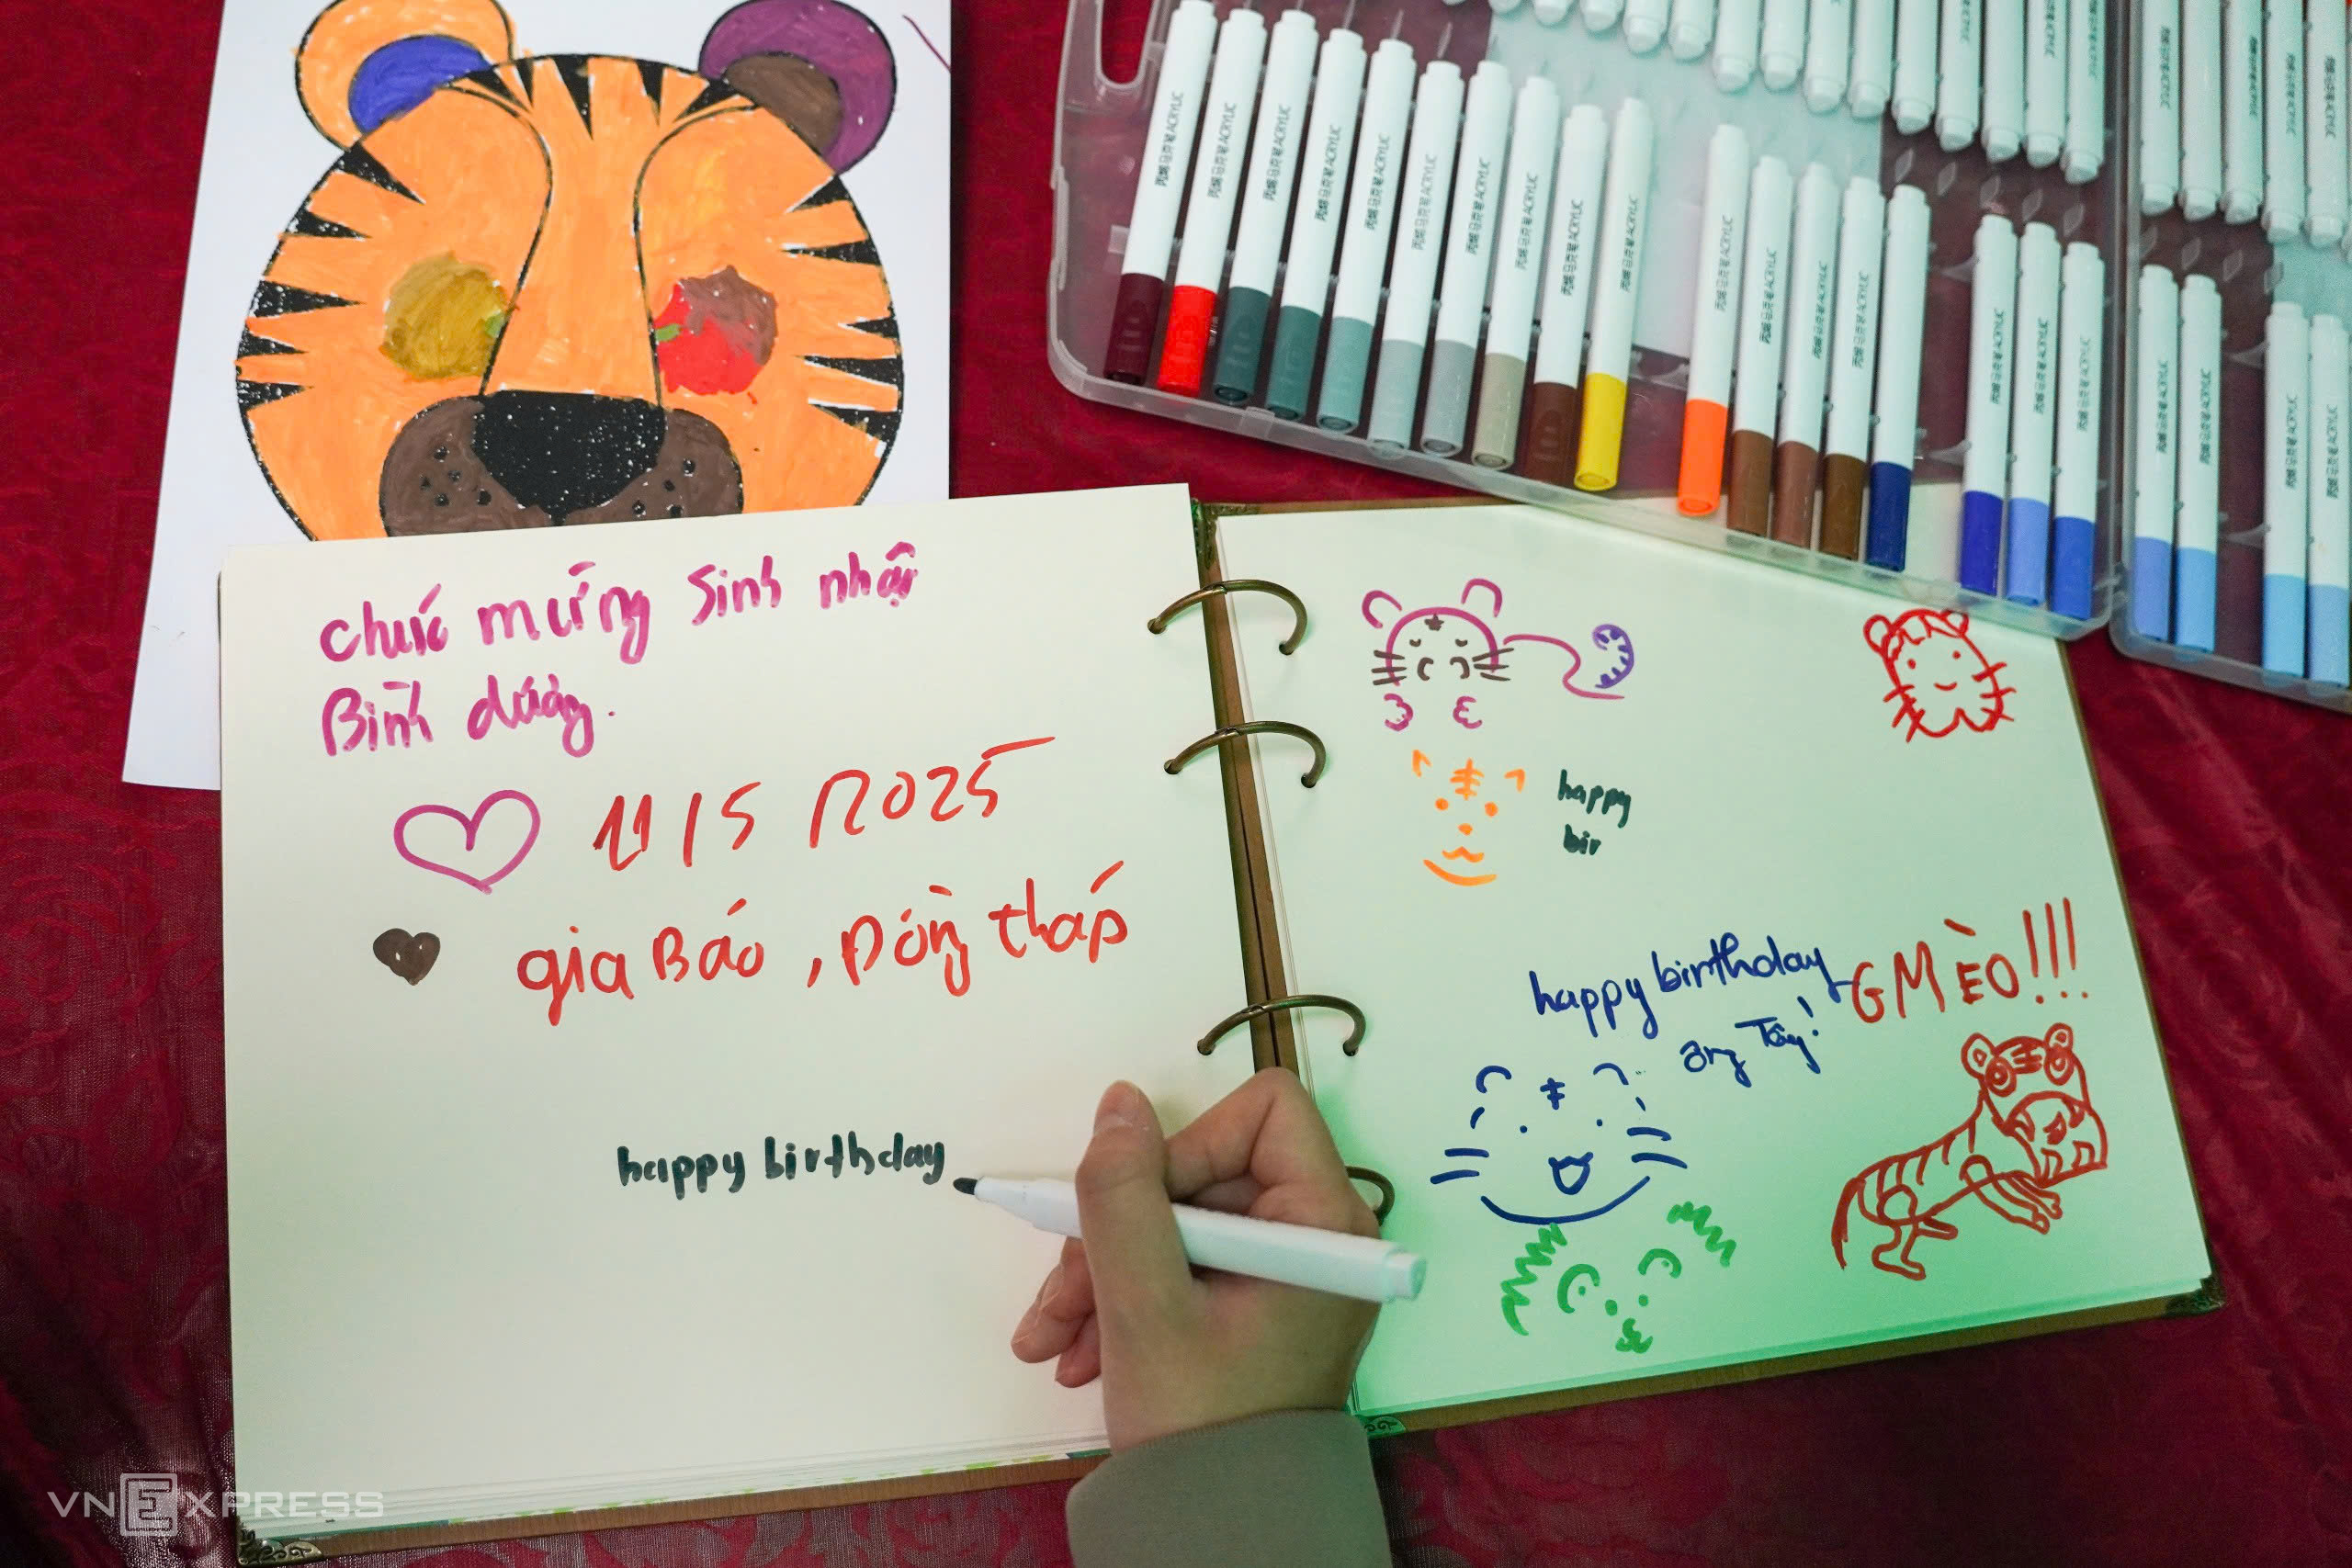 chúc mừng Sinh nhật
Bình dương.
11/5/2025
gia Bảo, Đồng tháp
happy birthday
happy
bir
happy birthday
ông Tây!
GMÈO!!!
ACRYLIC
VNEXPRESS